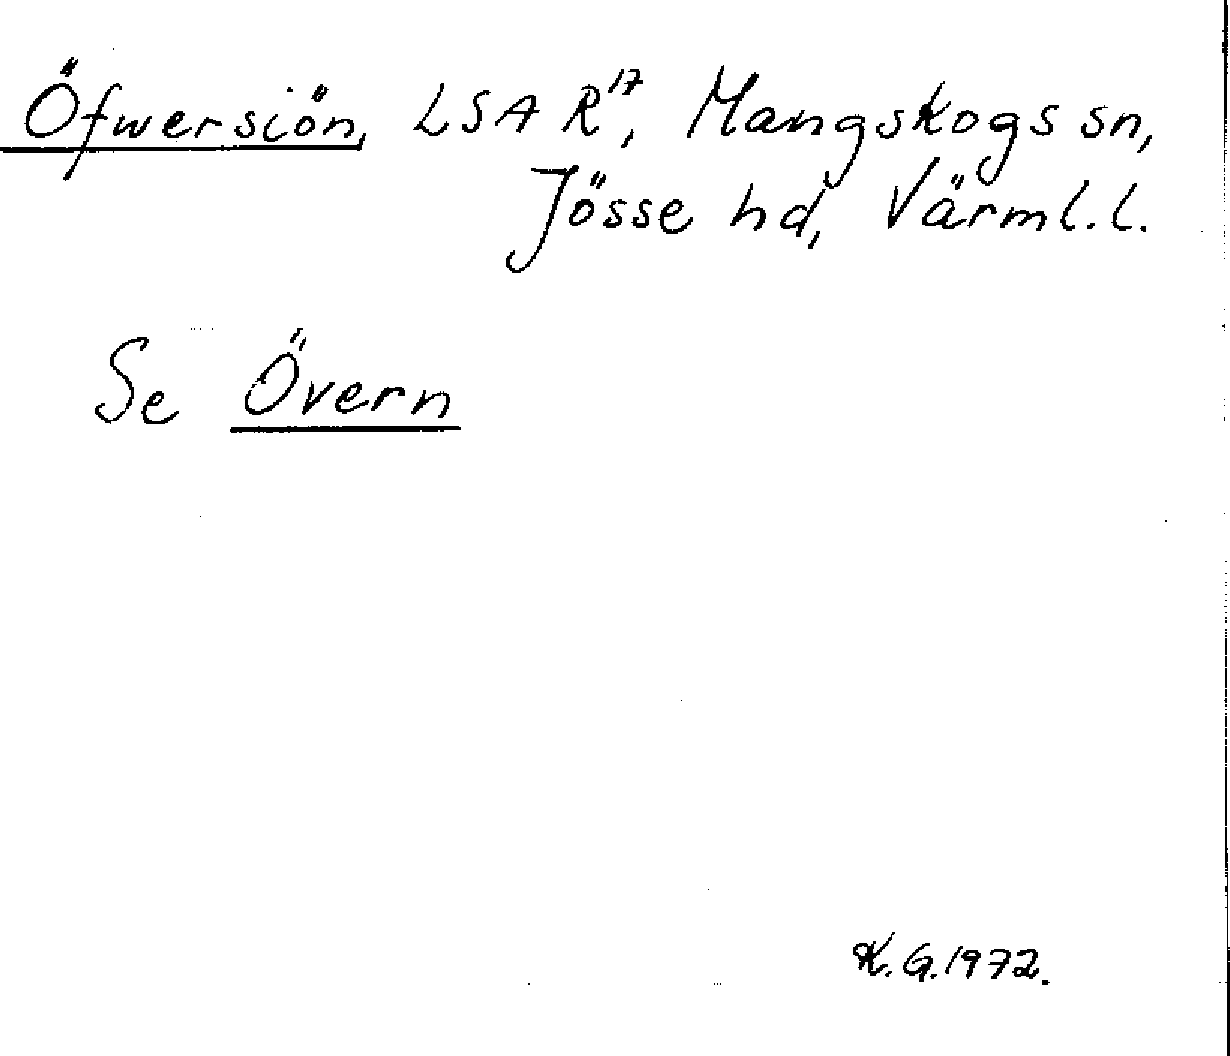 Öfwersiön, LSA R17, Mangskogs sn,
Jösse hd, Värml. l.
Se Övern
K. G. 1972.